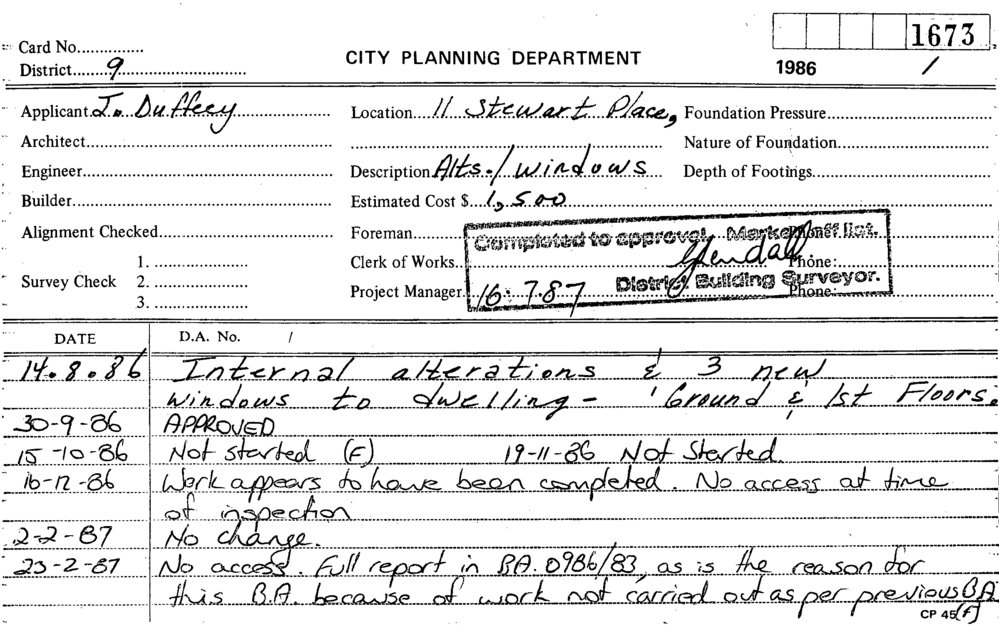 1673
Card No...............
CITY PLANNING DEPARTMENT
1986 /
District........9...........................
Applicant J. Duffecy
Location 11 Stewart Place,
Foundation Pressure
Architect
Nature of Foundation
Engineer
Description Alts./windows
Depth of Footings
Builder
Estimated Cost $ 1,500
Alignment Checked
Foreman
Completed to approval. Marked off list.
Survey Check
1.
2.
3.
Clerk of Works
Phone:
Project Manager
Phone:
16.7.87
District Building Surveyor.
DATE
D.A. No. /
14.8.86 Internal alterations & 3 new
windows to dwelling - Ground & 1st Floors.
30-9-86 APPROVED
15-10-86 Not started (F) 19-11-86 Not Started
16-12-86 Work appears to have been completed. No access at time
of inspection
2-2-87 No change.
23-2-87 No access. Full report in BA. 0986/83, as is the reason for
this B.A. because of work not carried out as per previous BA
CP 45 (F)